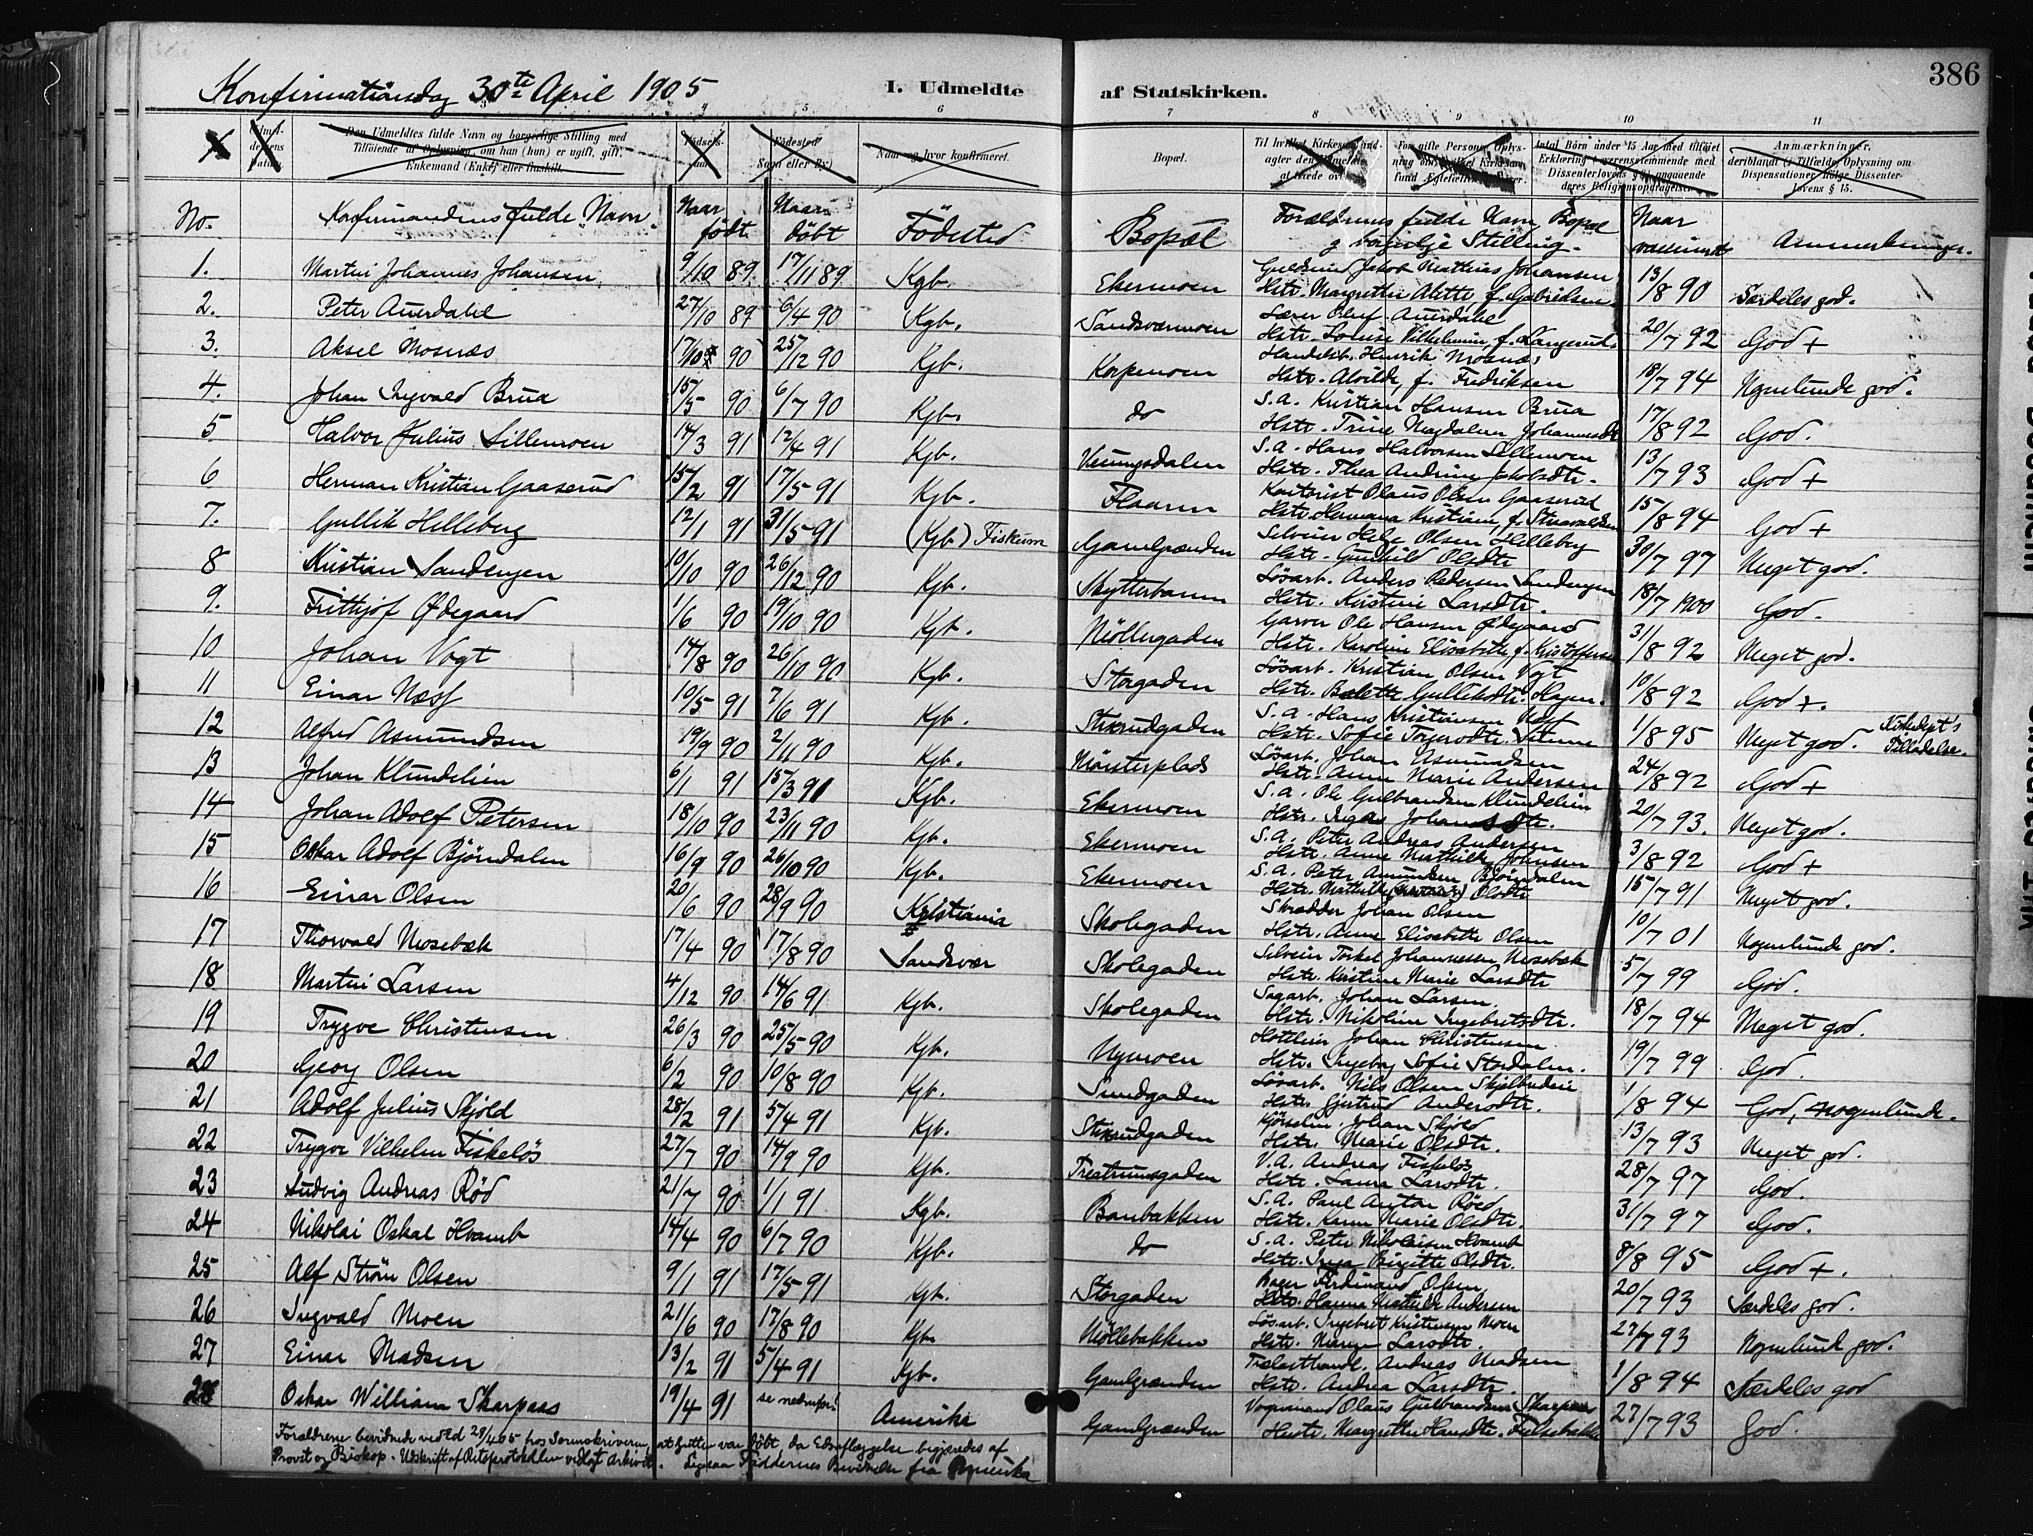 386
Konfirmationsdag 30te April 1905
I. Udmeldte af Statskirken.
3 4 5 6 7 8 9 10 11
Den Udmeldtes fulde Navn og borgerlige Stilling med
Tilføiende af Oplysning, om han (hun) er ugift, gift,
Enkemand (Enke) eller fraskilt.
Fødested
Sogn eller By)
Naar og hvor konfirmeret.
Bopæl.
Anmærkninger,
deriblandt (i Tilfælde) Oplysning om
Dispensationer ifølge Dissenter-
lovens § 15.
No. Konfirmandens fulde Navn Naar født Naar døbt Fødested Bopæl Forældrenes fulde Navn, Bopæl
og borgerlige Stilling. Naar vaccineret Anmerkninger.
1. Martin Johannes Johansen 9/10 89 17/11 89 Kgb. Ekermoen Jakob Mathias Johansen
Hstr. Margrethe Alette f. Gabrielsen 13/8 90 Særdeles god.
2. Peter Aurdahl 27/10 89 6/4 90 Kgb. Sandsværmoen Lærer Oluf Aurdahl
Hstr. Louise Vilhelmine f. Langerud 20/7 92 God +
3. Aksel Mosnæs 17/10 90 25/12 90 Kgb. Korpemoen Handelsb. Henrik Mosnæs
Hstr. Alvilde f. Fredriksen 18/7 94 Nogenlunde god.
4. Johan Ingvald Brua 15/5 90 6/7 90 Kgb. do S.A. Kristian Hansen Brua
Hstr. Trine Magdalene Johannesdtr 17/8 92 God.
5 Halvor Julius Lillemoen 14/3 91 12/4 91 Kgb. Heimgsdalen S.A. Hans Halvorsen Lillemoen
Hstr. Thea Andrine Jakobsdtr. 13/7 93 God +
6 Herman Kristian Gaaserud 15/2 91 17/5 91 Kgb. Flaarn Kontorist Olaus Olsen Gaaserud
Hstr. Hermana Kristiane, f. 15/8 94 God +
7. Gullik Helleberg 12/1 91 31/5 91 (Kgb.) Fiskum Gamlgrænden Selveier Helge Olsen Helleberg
Hstr. Gunhild Olsdtr 30/7 97 Meget god.
8 Kristian Sandengen 10/10 90 26/12 90 Kgb. Skytterbanen Løsarb. Anders Pedersen Sandengen
Hstr. Kristine Larsdtr. 18/7 1900 God.
9. Frithjof Ødegaard 1/6 90 19/10 90 Kgb. Møllergaden Garver Ole Hansen Ødegaard
Hstr. Karoline Elisabeth f. Kristoffersen 31/8 92 Meget god.
10 Johan Vogt 14/8 90 26/10 90 Kgb. Storgaden Løsarb. Kristian Olsen Vogt
Hstr. Bolette Gulliksdtr. Hagen. 10/8 92 God +.
11 Einar Næss 10/5 91 7/6 91 Kgb. Stixrudgaden S.A. Hans Kristiansen Næss
Hstr. Sofie 1/8 95 Meget god. Kirkedept's
Tilladelse.
12 Alfred Asmundsen 19/9 90 2/11 90 Kgb. Mønsterplads Løsarb. Johan Asmundsen
Hstr. Anne Marie Andersen 24/8 92 God +
13 Johan Klundelien 6/1 91 15/3 91 Kgb. Ekermoen S.A. Ole Gulbrandsen Klundelien
Hstr. Johannesdtr. 20/7 93. Meget god.
14 Johan Adolf Petersen 18/10 90 23/11 90 Kgb. Ekermoen S.A. Peter Andreas Andersen
Hstr. Anne Mathilde Johnsen 3/8 92 God +
15 Oskar Adolf Bjørndalen 16/9 90 26/10 90 Kgb. Ekermoen S.A. Peter Amundsen Bjørndalen
Hstr. Mathilde Olsdtr 15/7 91 Meget god.
16 Einar Olsen 20/6 90 28/9 90 Kristiania Skolegaden Skrædder Johan Olsen
Hstr. Anne Elisabeth Olsen 10/7 01 Nogenlunde god.
17 Thorvald Mosebæk 17/4 90 17/8 90 Sandsvær Skolegaden Selveier Torkel Johannessen Mosebæk
Hstr. Kristine Marie Larsdtr 5/7 99 God.
18 Martin Larsen 4/12 90 14/6 91 Kgb. Skolegaden Sagarb. Johan Larsen.
Hstr. Nikoline Ingebretsdtr. 18/7 94 Meget god.
19 Trygve Christensen 26/3 90 25/5 90 Kgb. Nymoen Johan Christensen
Hstr. Ingeborg Sofie Stordalen. 19/7 99 God
20 Georg Olsen 6/2 90 10/8 90 Kgb. Sundgaden Løsarb. Nils Olsen
Hstr. Gjertrud Andersdtr. 1/8 94 God, nogenlunde.
21 Adolf Julius Skjold 28/2 91 5/4 91 Kgb. Stixrudgaden Johan Skjold
Hstr. Marie Olsdtr. 13/7 93 Meget god.
22 Trygve Vilhelm Fiskeløs 27/7 90 14/9 90 Kgb. Treatrumsgaden V.A. Andreas Fiskeløs
Hstr. Laura Larsdtr. 28/7 97 God.
23 Ludvig Andreas Rød 21/7 90 1/1 91 Kgb. Banbakken S.A. Paul Anton Røed
Hstr. Karen Marie Olsdtr. 31/7 97 God.
24 Nikolai Oskal Hvamb 14/4 90 6/7 90 Kgb. do S.A. Peter Nikolaisen Hvamb
Hstr. Inga Birgitte Olsdtr. 8/8 95 God +.
25 Alf Strøm Olsen 9/1 91 17/5 91 Kgb. Storgaden Bager Ferdinand Olsen
Hstr. Hanna Mathilde Andersen 20/7 93 Særdeles god.
26 Ingvald Moen 21/6 90 17/8 90 Kgb. Møllebakken Løsarb. Ingebret Kristensen Moen
Hstr. Maren Larsdtr. 27/7 93 Nogenlund god.
27 Einar Madsen 13/2 91 5/4 91 Kgb. Gamlgrænden Andreas Madsen
Hstr. Andrea Larsdtr. 1/8 94 Særdeles god
28 Oskar William Skarpaas 19/4 91 se nedenfor! Amerika Gamlgrænden Vognmand Olaus Gulbrandsen Skarpaas
Hustr. Margrethe Hansdtr. 27/7 93 God.
Forældrene bevidnede ved Ed 29/4 05 hos Sorenskriveren, at gutten var døbt, da Edsaflæggelse begjæredes af
Provst og Biskop. Udskrift af Retsprotokollen vedlagt Arkivet. Ligesaa Faddernes Bevidnelse fra Amerika